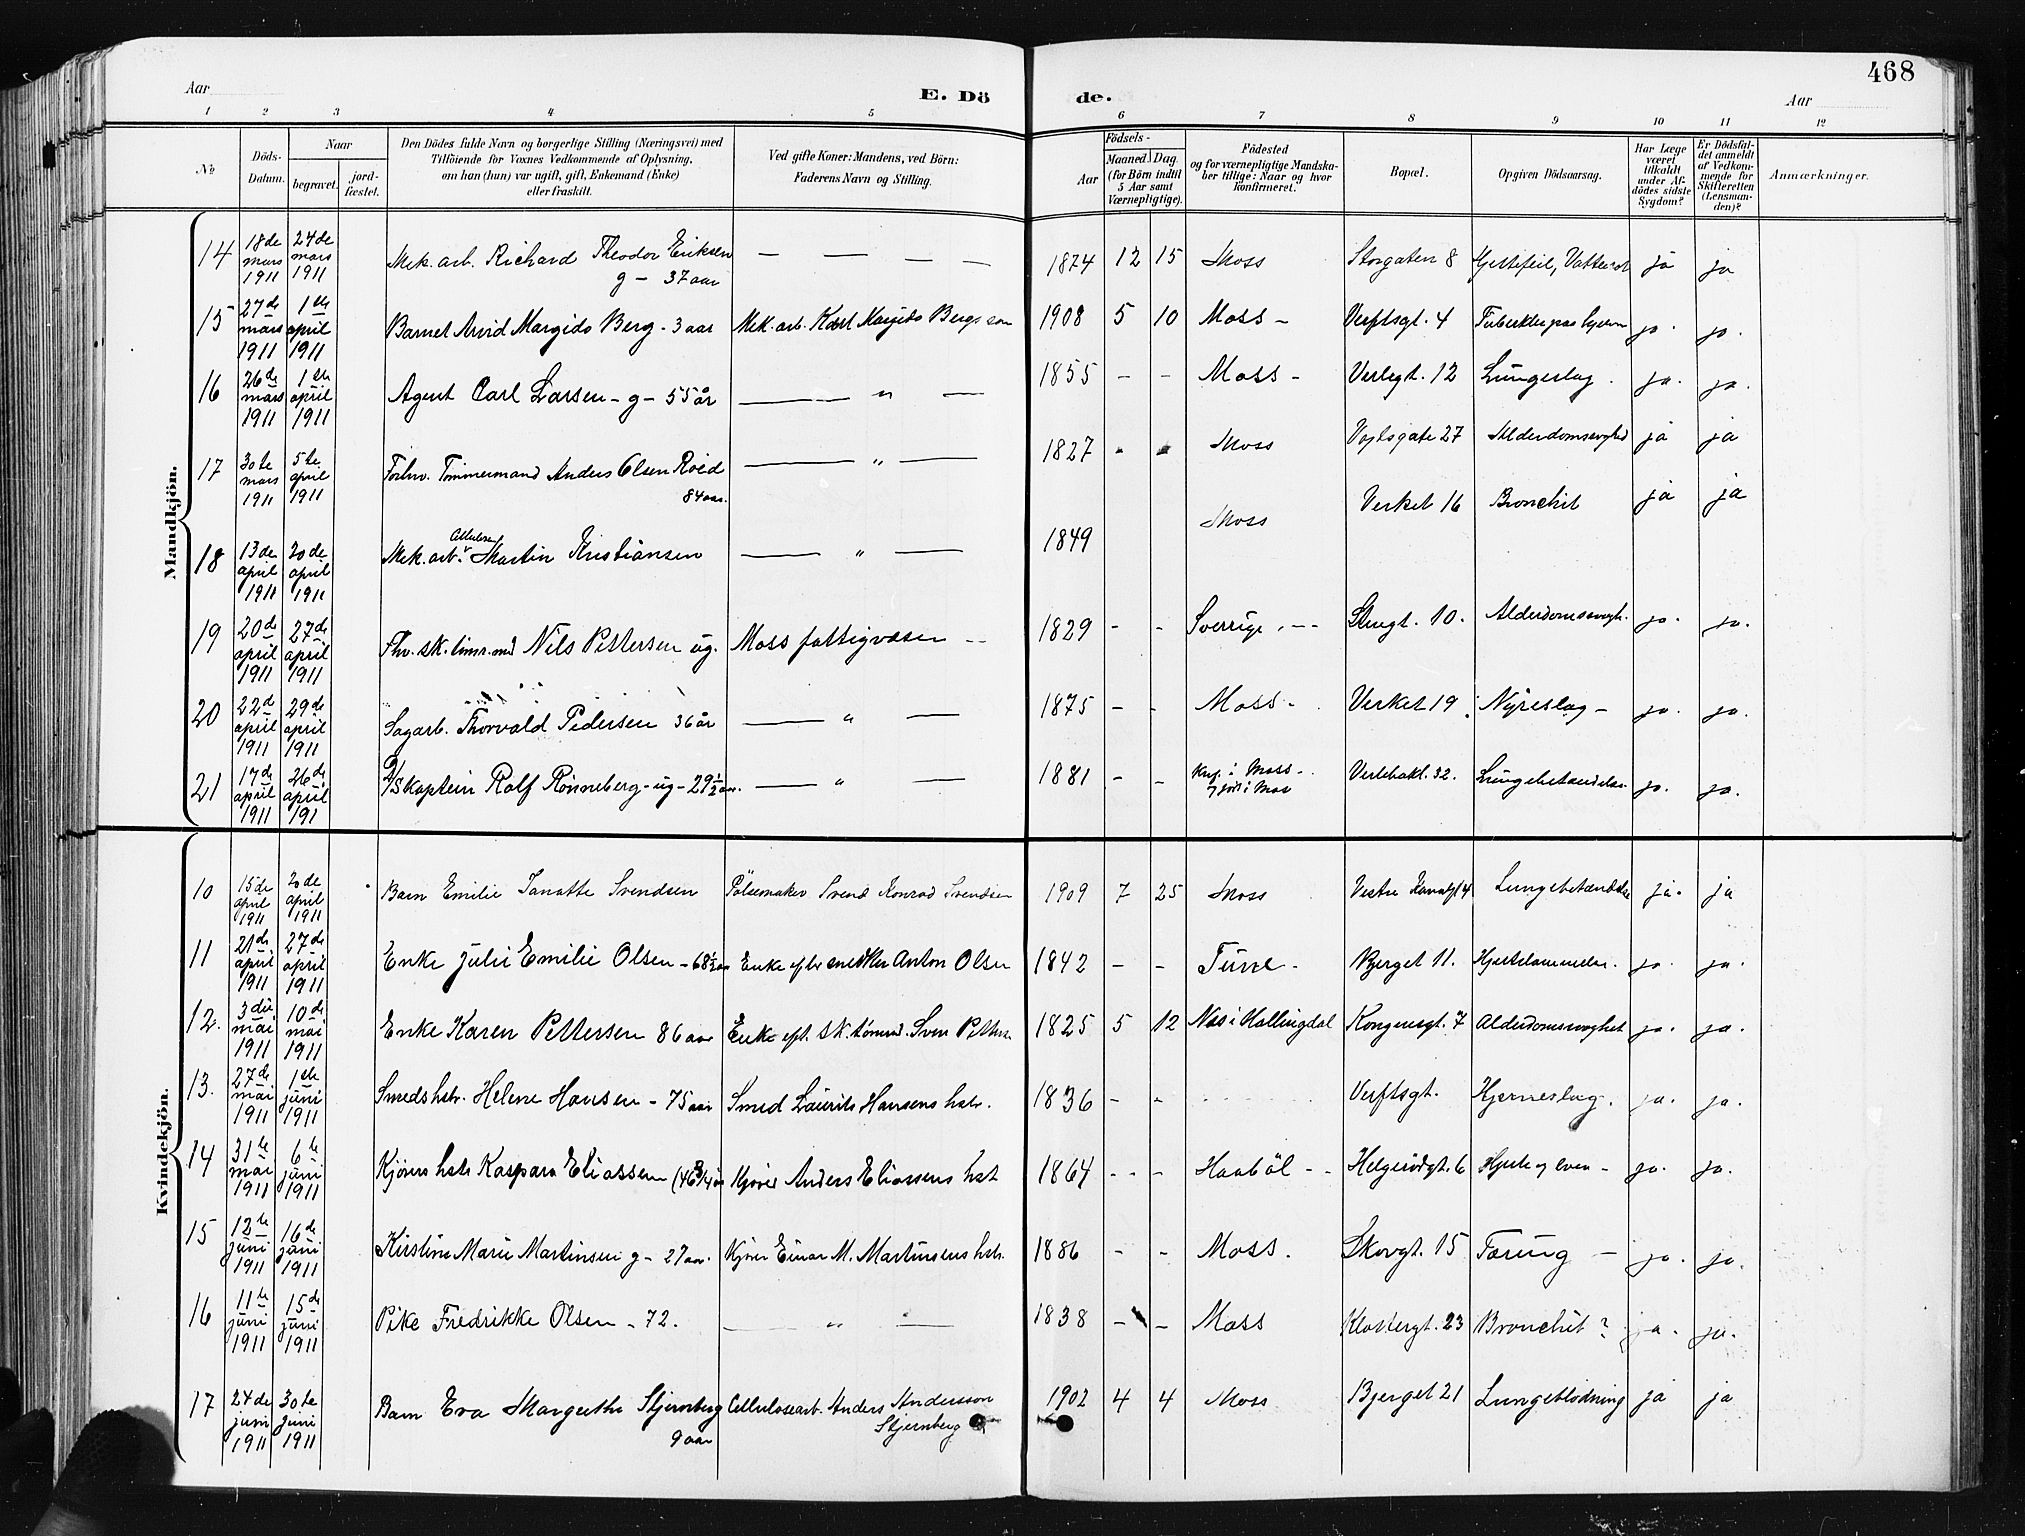 468
Aar
E. Dö
de.
Aar
1 2 3 4 5 6 7 8 9 10 11 12
№
Döds-
Datum.
Naar
begravet.
jord-
fæstet.
Den Dödes fulde Navn og borgerlige Stilling (Næringsvei) med
Tilföiende for Voxnes Vedkommende af Oplysning,
om han (hun) var ugift, gift, Enkemand (Enke)
eller fraskilt.
Ved gifte Koner: Mandens, ved Börn:
Faderens Navn og Stilling.
Födsels-
Aar
Maaned. Dag.
(for Börn indtil
5 Aar samt
Værnepligtige).
Födested
og for værnepligtige Mandska-
ber tillige: Naar og hvor
konfirmeret.
Bopæl.
Opgiven Dödsaarsag.
Har Læge
været
tilkaldt
under Af-
dödes sidste
Sygdom?
Er Dödsfal-
det anmeldt
af Vedkom-
mende for
Skifteretten
(Lensman-
den)?
Anmærkninger.
Mandkjön.
14 18de mars 1911 24de mars 1911 Mek. arb. Richard Theodor Eriksen g - 37 aar — — — — 1874 12 15 Moss Storgaten 8 ja ja
15 27de mars 1911 1ste april 1911 Barnet Arvid Margido Berg - 3 aar Mek. arb. Karl Margido Bergs søn 1908 5 10 Moss - Verftsgt. 4 ja. ja.
16 26de mars 1911 1ste april 1911 Agent Carl Larsen - g - 55 år — " — 1855 - - Moss - Verlegt. 12 Lungeslag. ja. ja.
17 30te mars 1911 5te april 1911 Forhv. Tømmermand Anders Olsen Roed 84 aar. — " — 1827 - - Moss Vogtsgate 27 Alderdomssvaghed ja ja
18 13de april 1911 20de april 1911 Mek. arb. Martin Kristiansen — " — 1849 Moss Verket 16 Bronchit ja ja
19 20de april 1911 27de april 1911 Fhv. sk. tømr.md Nils Pettersen ug. Moss fattigvæsen -- 1829 - - Sverrige. -- Stengt. 10. Alderdomssvagh. ja. ja.
20 22de april 1911 29de april 1911 Sagarb. Thorvald Pedersen 36 år — " — 1875 - - Moss - Verket 19 Nyreslag - ja. ja.
21 17de april 1911 26de april 191 D/S Kaptein Rolf Rønneberg - ug - 29 1/2 aar. — " — 1881 - - Moss - 32. Lungebetændelse ja. ja.
Kvindekjön.
10 15de april 1911 20de april 1911 Barn Emilie Janatte Svendsen Pölsemaker Svend Konrad Svendsen 1909 7 25 Moss Vestre Kanalgt 4 Lungebetændelse ja. ja
11 21de april 1911 27de april 1911 Enke Julie Emilie Olsen - 68 1/2 aar Enke efter snedker Anton Olsen 1842 - - Tune - Bjerget 11. Hjertelammelse. ja. ja.
12. 3die mai 1911 10de mai 1911 Enke Karen Pettersen 86 aar Enke eft. sk. tømrmd. Sven Petters. 1825 5 12 Næs i Hallingdal Kongensgt. 7 Alderdomssvaghet ja. ja.
13. 27de mai 1911 1ste juni 1911 Smeds hstr. Helene Hansen - 75 aar Smed Laurits Hansens hstr. 1836 - - Verftsgt. Hjerneslag. ja. ja.
14 31te mai 1911 6te juni 1911 Kjørers hstr Kaspara Eliassen (46 3/4 år Kjører Anders Eliassens hst 1864 - - - Haabøl - - Helgerødgt. 6 ja. ja.
15 12te juni 1911 16de juni 1911 Kirstine Marie Martinsen g - 27 aar. Kjører Einar M. Martinsens hstr. 1886 - - Moss. Skovgt. 15 Tæring - ja. ja.
16 11te juni 1911 15de juni 1911 Pike Fredrikke Olsen - 72. — " — 1838 - - Moss Klostergt. 23 Bronchit? ja. ja.
17 24de juni 1911 30te juni 1911 Barn Eva Margrethe Stjernberg 9 aar Cellulosearb. Anders Andersson Stjernberg 1902 4 4 Moss Bjerget 21 Lungeblødning ja ja